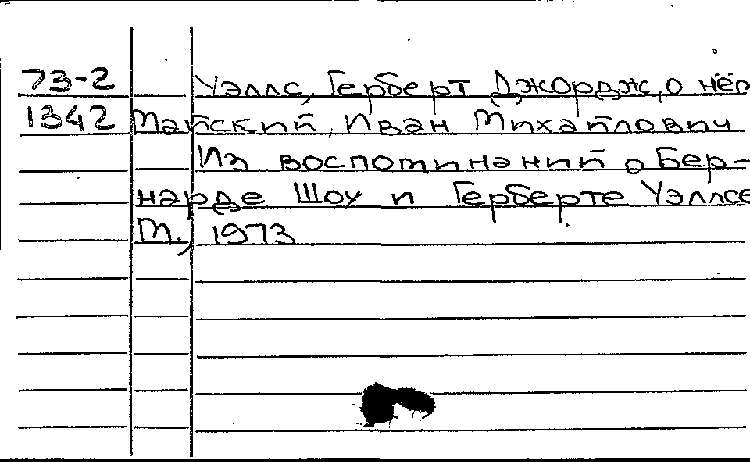 73-2 Уэллс, Герберт Джордж, о нём
1342 Майский, Иван Михайлович
Из воспоминаний о Бер-
нарде Шоу и Герберте Уэллсе
М., 1973